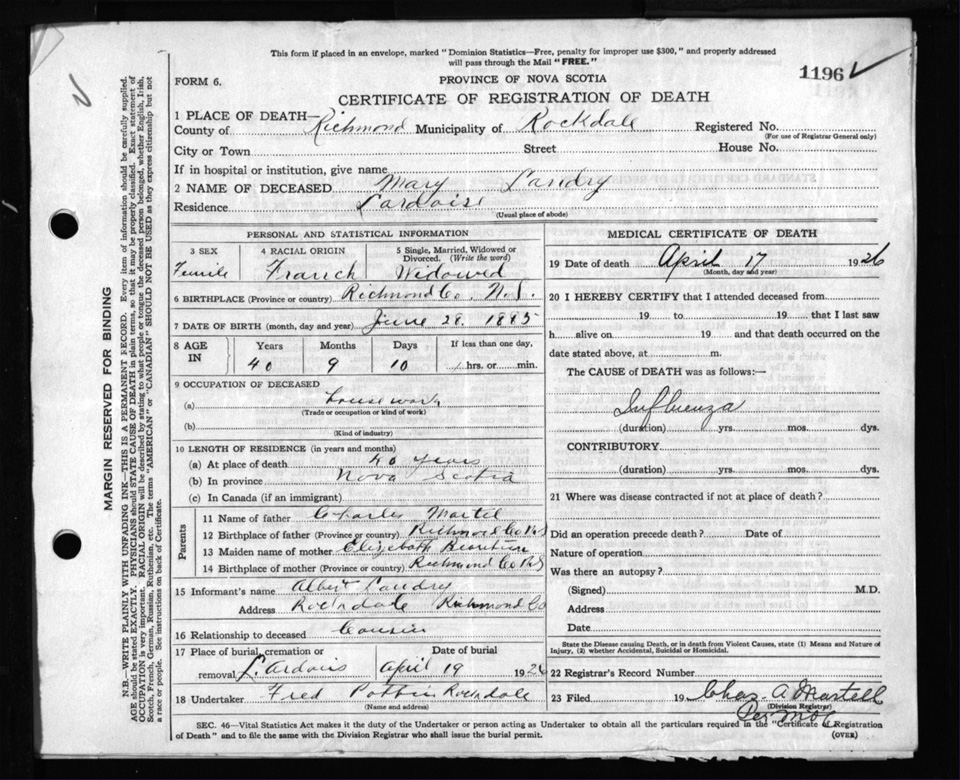 This form if placed in an envelope, marked "Dominion Statistics—Free, penalty for improper use $300," and properly addressed
will pass through the Mail "FREE."
1196
FORM 6.
PROVINCE OF NOVA SCOTIA
CERTIFICATE OF REGISTRATION OF DEATH
1 PLACE OF DEATH—
County of Richmond Municipality of Rockdale Registered No.
(For use of Registrar General only)
City or Town Street House No.
If in hospital or institution, give name
2 NAME OF DECEASED Mary Landry
Residence Lardoise
(Usual place of abode)
PERSONAL AND STATISTICAL INFORMATION
3 SEX 4 RACIAL ORIGIN 5 Single, Married, Widowed or Divorced. (Write the word)
Femile Franch Widowed
6 BIRTHPLACE (Province or country) Richmond Co. N.S.
7 DATE OF BIRTH (month, day and year) June 28. 1885
8 AGE IN Years Months Days If less than one day,
40 9 10 hrs. or min.
9 OCCUPATION OF DECEASED
(a) housework
(Trade or occupation or kind of work)
(b)
(Kind of industry)
10 LENGTH OF RESIDENCE (in years and months)
(a) At place of death 40 years
(b) In province Nova Scotia
(c) In Canada (if an immigrant)
Parents
11 Name of father Charles Martel
12 Birthplace of father (Province or country) Richmond Co NS
13 Maiden name of mother Elizabeth
14 Birthplace of mother (Province or country) Richmond Co NS
15 Informant's name Albert Landry
Address Rockdale Richmond Co
16 Relationship to deceased Cousin
17 Place of burial, cremation or removal Date of burial
L. Ardois April 19 1926
18 Undertaker Fred Rockdale
(Name and address)
MEDICAL CERTIFICATE OF DEATH
19 Date of death April 17 1926
(Month, day and year)
20 I HEREBY CERTIFY that I attended deceased from
19 to 19 that I last saw
h alive on 19 and that death occurred on the
date stated above, at m.
The CAUSE of DEATH was as follows:—
Influenza
(duration) yrs. mos. dys.
CONTRIBUTORY
(duration) yrs. mos. dys.
21 Where was disease contracted if not at place of death?
Did an operation precede death? Date of
Nature of operation
Was there an autopsy?
(Signed) M.D.
Address
Date
State the Disease causing Death, or in death from Violent Causes, state (1) Means and Nature of
Injury, (2) whether Accidental, Suicidal or Homicidal.
22 Registrar's Record Number
23 Filed 19 Chas. A Martell
(Division Registrar)
SEC. 46—Vital Statistics Act makes it the duty of the Undertaker or person acting as Undertaker to obtain all the particulars required in the "Certificate of Registration
of Death" and to file the same with the Division Registrar who shall issue the burial permit.
(OVER)
MARGIN RESERVED FOR BINDING
N.B.—WRITE PLAINLY WITH UNFADING INK—THIS IS A PERMANENT RECORD. Every item of information should be carefully supplied.
AGE should be stated EXACTLY. PHYSICIANS should STATE CAUSE OF DEATH in plain terms, so that it may be properly classified. Exact statement of
OCCUPATION is very important. RACIAL ORIGIN will be described by stating to what people or tongue the deceased person belonged, whether English, Irish,
Scotch, French, German, Russian, Ruthenian, etc. The terms "AMERICAN" or "CANADIAN" SHOULD NOT BE USED as they express citizenship but not
a race or people. See instructions on back of Certificate.